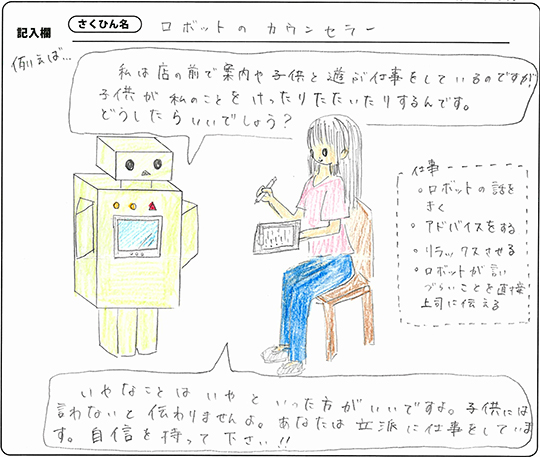 記入欄 さくひん名 ロボットのカウンセラー
例えば…
私は店の前で案内や子供と遊ぶ仕事をしているのですが
子供が私のことをけったりたたいたりするんです。
どうしたらいいでしょう?
仕事
○ロボットの話を
きく
○アドバイスをする
○リラックスさせる
○ロボットが言い
づらいことを直接
上司に伝える
いやなことはいやといった方がいいですよ。子供には
言わないと伝わりませんよ。あなたは立派に仕事をしていま
す。自信を持って下さい!!